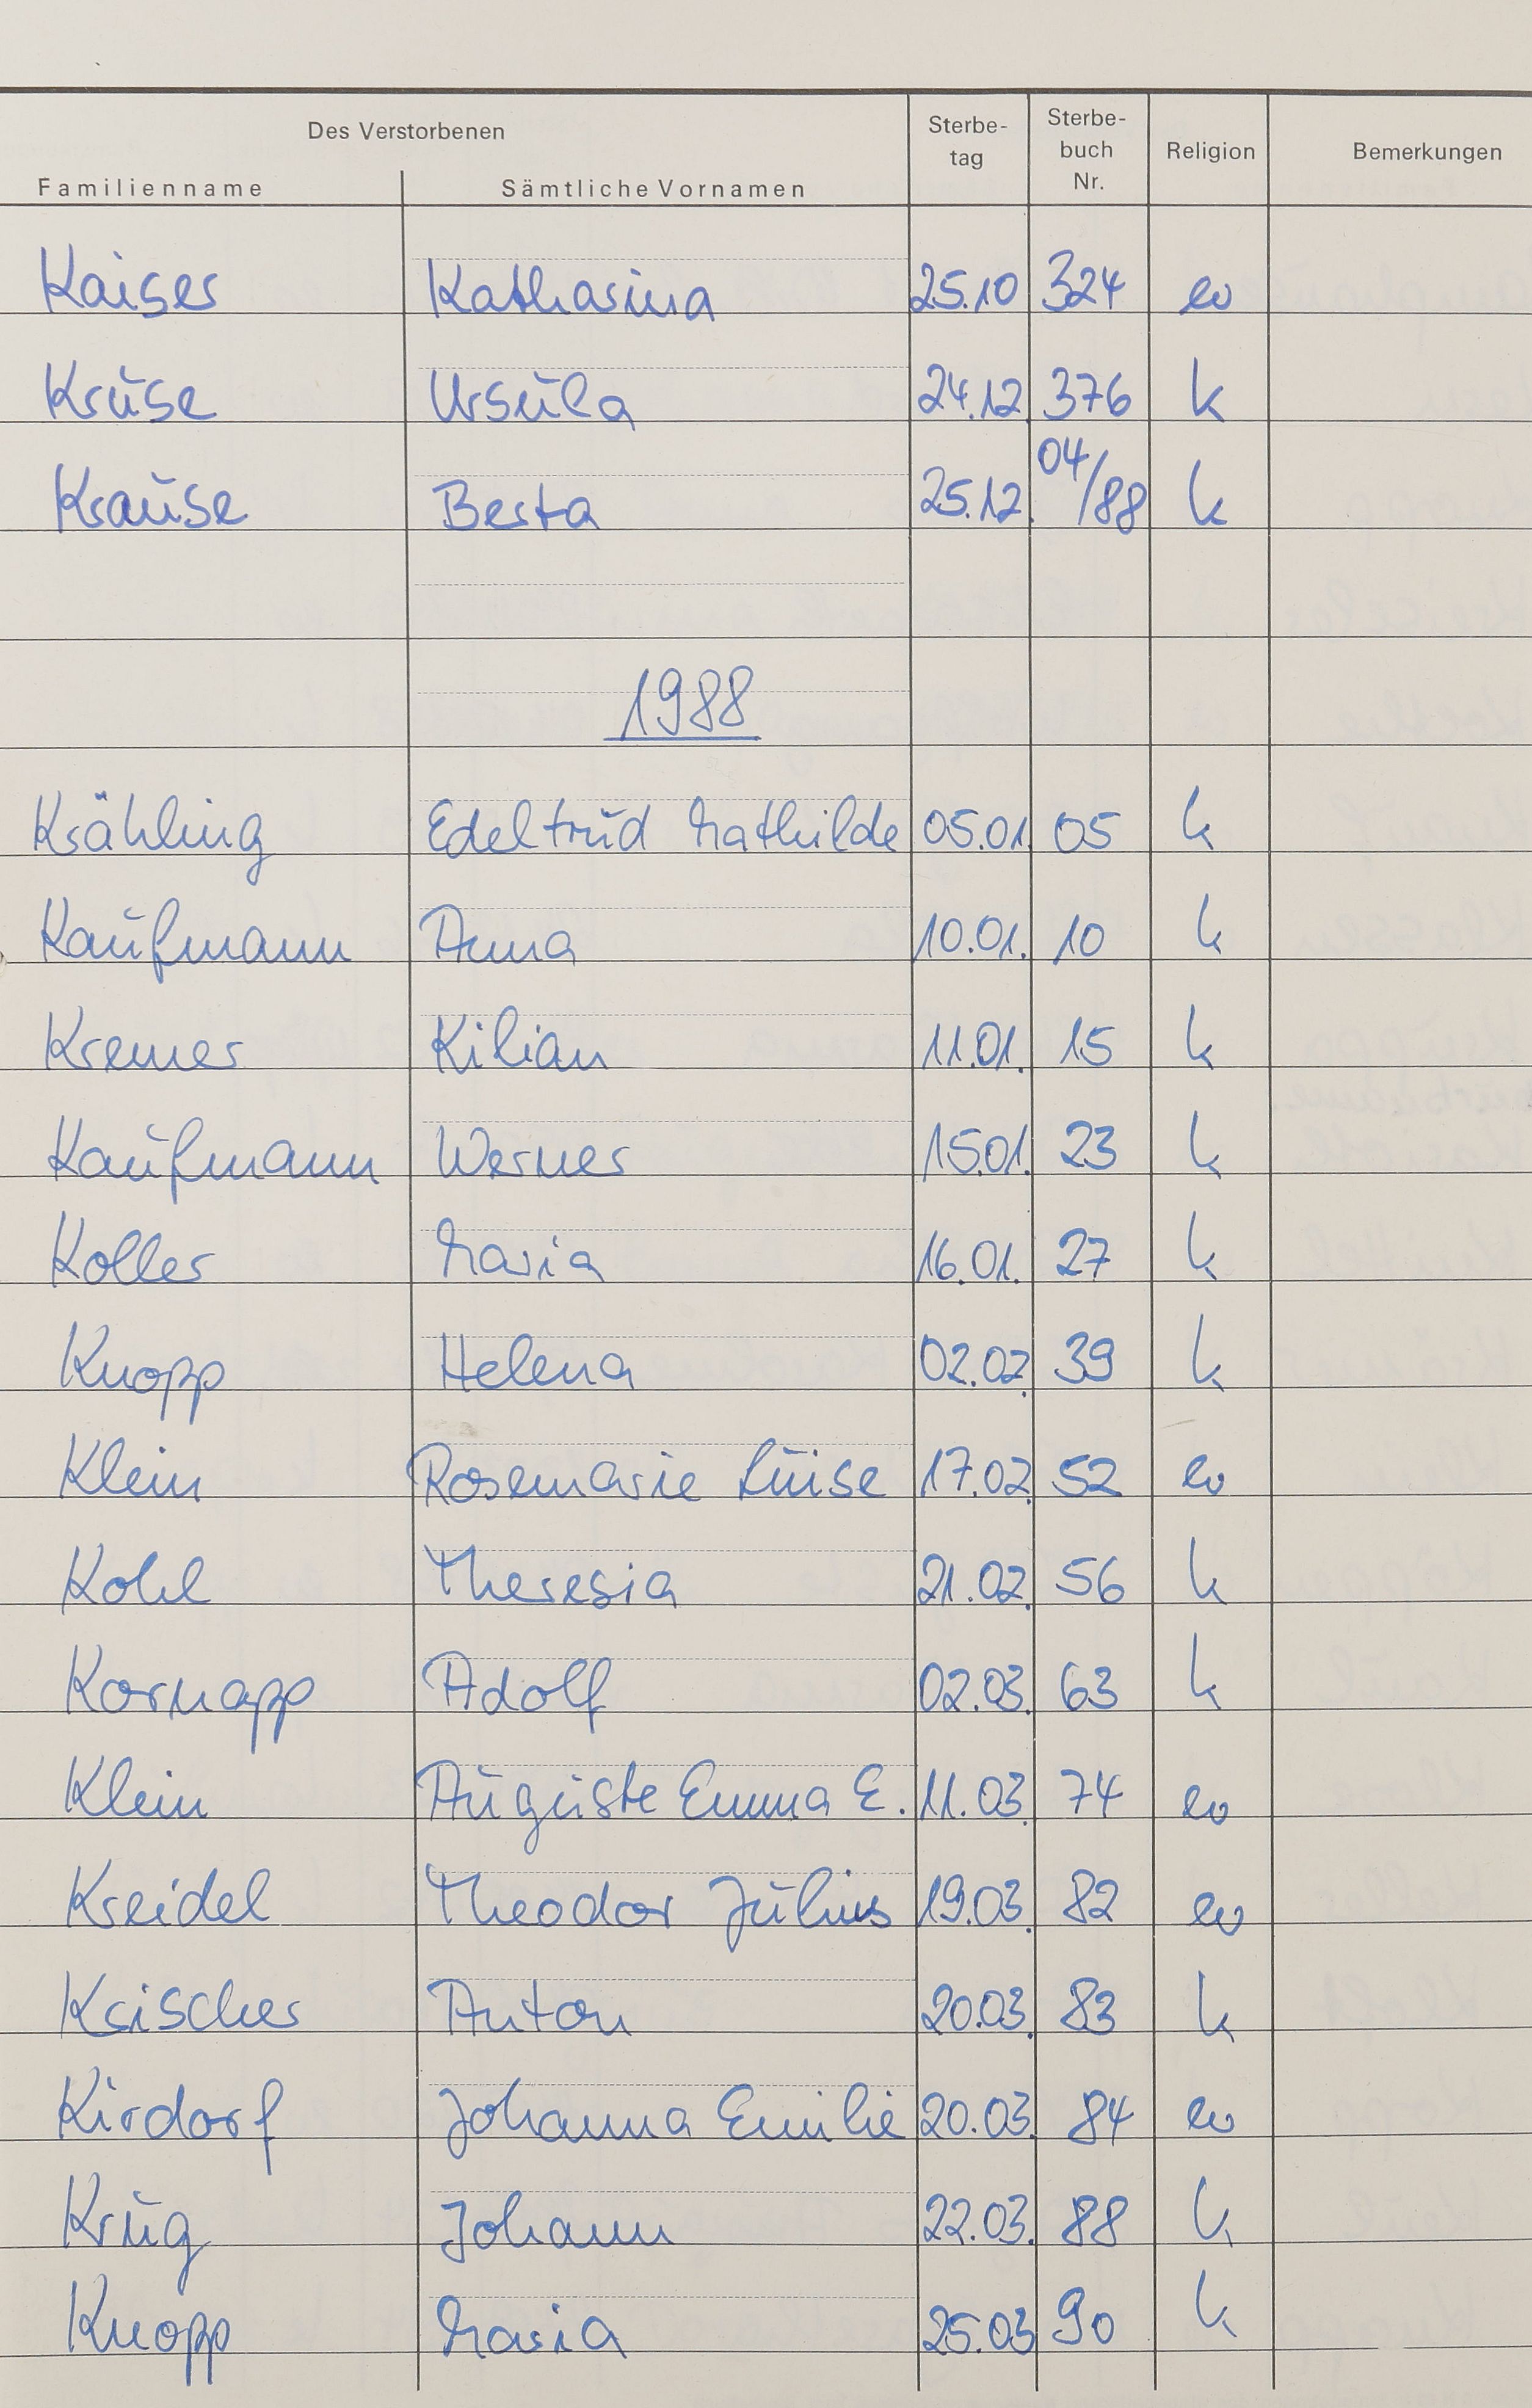 Des Verstorbenen
Familienname Sämtliche Vornamen Sterbe-tag Sterbe-buch Nr. Religion Bemerkungen
Kaiser Katharina 25.10 324 ev
Kruse Ursula 24.12. 376 k
Krause Berta 25.12. 04/88 k
1988
Krähling Edeltrud Mathilde 05.01. 05 k
Kaufmann Anna 10.01. 10 k
Kremer Kilian 11.01. 15 k
Kaufmann Werner 15.01. 23 k
Koller Maria 16.01. 27 k
Knopp Helena 02.02. 39 k
Klein Rosemarie Luise 17.02. 52 ev
Kohl Theresia 21.02. 56 k
Kornapp Adolf 02.03. 63 k
Klein Auguste Emma E. 11.03. 74 ev
Kreidel Theodor Julius 19.03. 82 ev
Krischer Anton 20.03. 83 k
Kirdorf Johanna Emilie 20.03. 84 ev
Krug Johann 22.03. 88 k
Knopp Maria 25.03 90 k